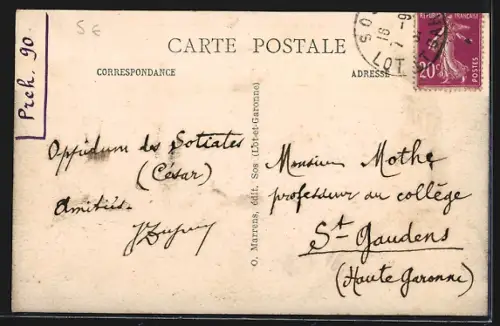 5€
Prch. 90
CARTE POSTALE
CORRESPONDANCE
ADRESSE
SOS
16
7-9
LOT
REPUBLIQUE FRANÇAISE
20c
POSTES
Oppidum des Sotiates
(César)
Amitiés.
JDupuy
O. Marrens, édit. Sos (Lot-et-Garonne)
Monsieur Mothe
professeur au collège
St Gaudens
(Haute Garonne)